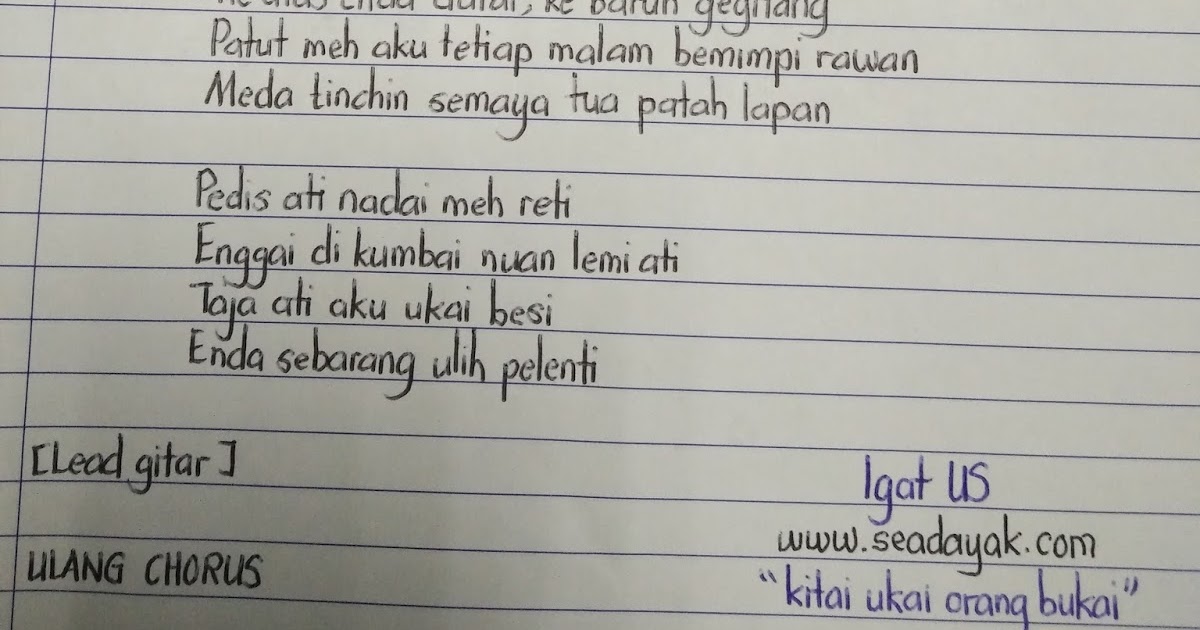 baruh gegitang
Patut meh aku tetiap malam bemimpi rawan
Meda tinchin semaya tua patah lapan
Pedis ati nadai meh reti
Enggai di kumbai nuan lemi ati
Taja ati aku ukai besi
Enda sebarang ulih pelenti
[Lead gitar]
Igat US
www.seadayak.com
ULANG CHORUS
"kitai ukai orang bukai"